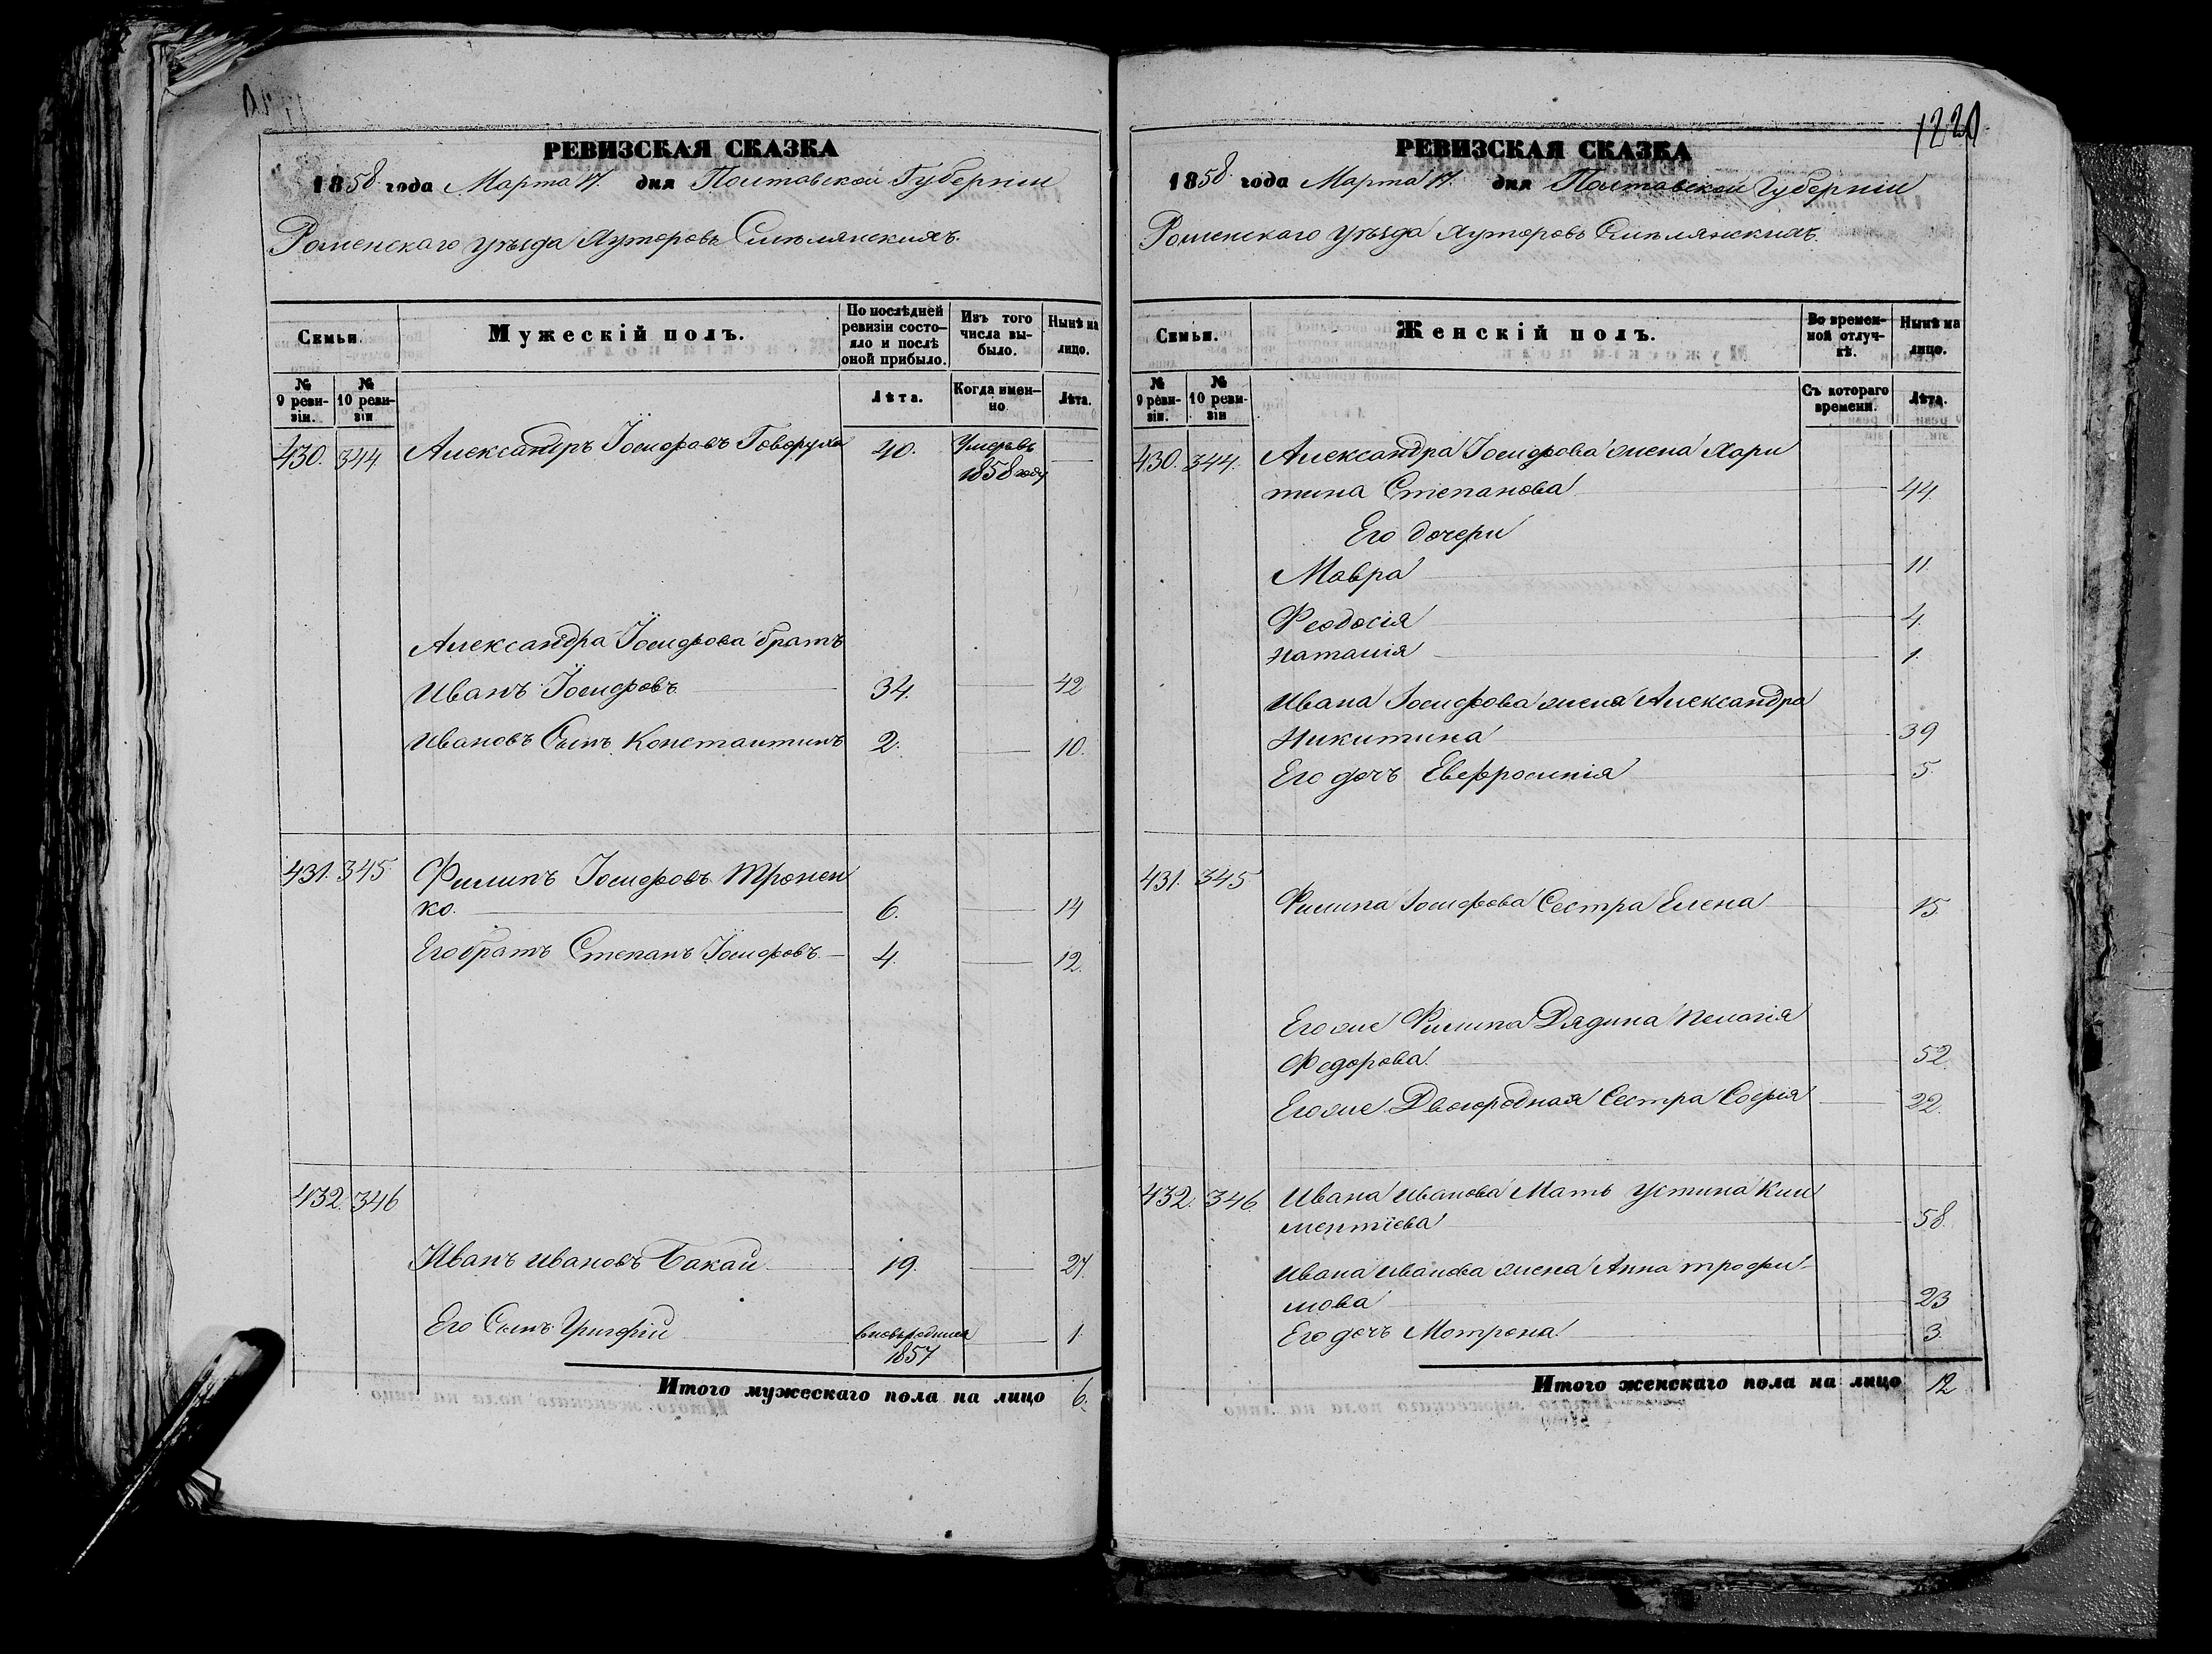 РЕВИЗСКАЯ СКАЗКА
1858 года Марта 17. дня Полтавской Губерніи
Роменскаго уѣзда Хуторовъ Смѣлянскихъ.
Семьи.
Мужескій полъ.
По послѣдней ревизіи состояло и послѣ оной прибыло.
Изъ того числа выбыло.
Нынѣ на лицо.
№ 9 ревизіи.
№ 10 ревизіи
Лѣта.
Когда именно.
Лѣта.
430. 344 Александръ Іосифовъ Говоруха 40. Умеръ въ
1858 году
Александра Іосифова братъ
Иванъ Іосифовъ 34. 42
Ивановъ Сынъ Константинъ 2. 10.
431. 345 Филипъ Іосифовъ Тронен
ко. 6. 14
Его братъ Степанъ Іосифовъ 4. 12.
432. 346
Иванъ Ивановъ Бакай 19. 27.
Его Сынъ Григорій вновьродился 1.
1857
Итого мужескаго пола на лицо 6.
1220
РЕВИЗСКАЯ СКАЗКА
1858 года Марта 17. дня Полтавской Губерніи
Роменскаго уѣзда Хуторовъ Смѣлянскихъ.
Семьи.
Женскій полъ.
Во временной отлучкѣ.
Нынѣ на лицо.
№ 9 ревизіи.
№ 10 ревизіи
Съ котораго времени.
Лѣта.
430. 344. Александра Іосифова жена Хари
тина Степанова 44.
Его дочери
Мавра 11.
Феодосія 4.
Наталія 1.
Ивана Іосифова жена Александра
Никитина 39
Его дочь Евфросинія 5.
431. 345
Филипа Іосифова Сестра Елена 15
Его же Филипа Дядина Пелагія
Федорова 52
Его же Двоюродная Сестра Софія 22.
432. 346 Ивана Иванова Мать Устина Кли
ментіева 58.
Ивана Иванова жена Анна Трофи-
мова 23
Его дочь Мотрона 3.
Итого женскаго пола на лицо 12